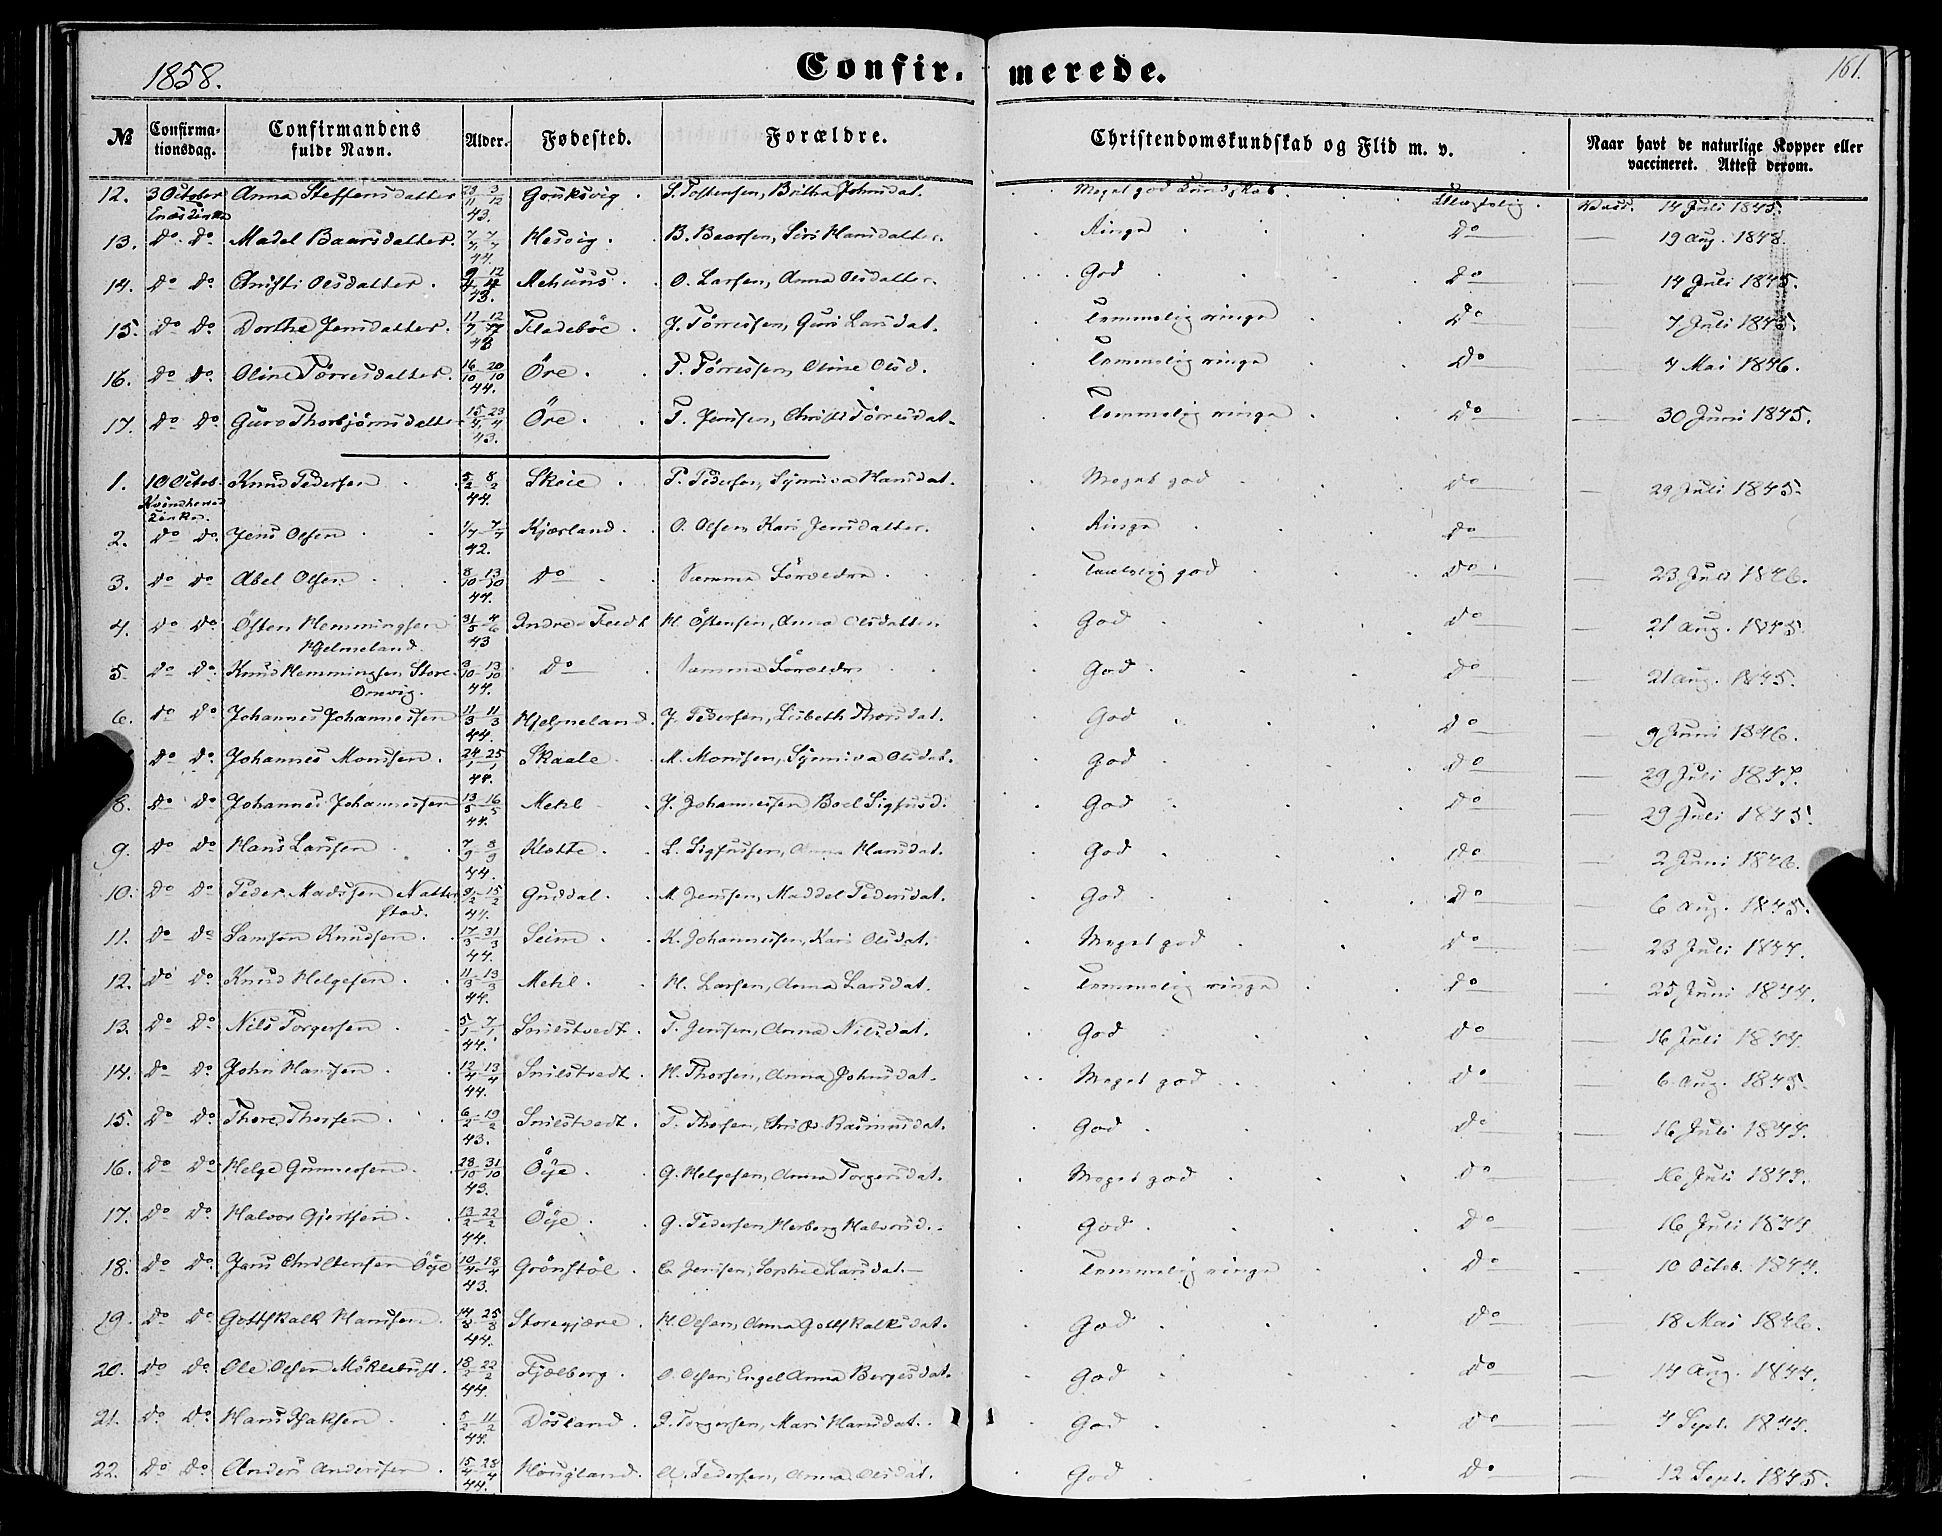 1858.
Confirmerede.
161.
№ Confirmationsdag. Confirmandens fulde Navn. Alder. Fødested. Forældre. Christendomskundskab og Flid m. v. Naar havt de naturlige Kopper eller vaccineret. Attest derom.
12. 3 October Anna Steffensdatter 23/11 3/12 43. S. Tostensen, Britha Johnsdat. Meget god Kundskab. Vacc. 14 Juli 1845.
Enæs Kirke
13. Do Do Madel Baarsdatter. 7/7 44. Hesvig. B. Baarsen, Siri Hansdatter. Ringe Do — 19 Aug. 1848.
14. Do Do Christi Olsdatter. 43. Mehuus. O. Larsen, Anna Olsdatter. God Do — 14 Juli 1845.
15. Do Do Dorthe Jensdatter. Fladebøe. J. Tørresen, Guri Larsdat. Temmelig ringe Do — 7 Juli 1845.
16. Do Do Oline Tørresdatter. 16/10 20/10 44. Öre. T. Tørresen, Oline Olsd. Temmelig ringe Do — 4 Mai 1846.
17. Do Do Guro Thorbjørnsdatter 15/4 23/4 43. Öre. T. Jensen, Christi Tørresdat. Temmelig ringe Do — 30 Juni 1845.
1. 10 Octob. Knud Pedersen 5/2 8/2 44. Skeie. P. Pedersen, Synniva Hansdat. Meget god Do — 29 Juli 1845.
Kvindherred Kirke.
2. Do Do Jens Olsen 1/7 7/7 42. Kjærland. O. Olsen, Kari Jensdatter. Ringe Do
3. Do Do Abel Olsen 8/10 13/10 44. Do Samme Forældre. god Do — 23 Juli 1846.
4. Do Do Östen Hemmingsen 31/5 4/6 43 Indre-Tvedt H. Östensen, Anna Olsdatter God Do — 21 Aug. 1845.
Hjelmeland.
5. Do Do Knud Hemmingsen Store- 9/10 13/10 44. Do Samme Forældre God Do — 21 Aug. 1845.
Omvig.
6. Do Do Johannes Johannessen 11/3 11/3 44. Hjelmeland. J. Pedersen, Lisbeth Thorsdat. God Do — 9 Juni 1846.
Do Do Johannes Monssen. 24/1 25/1 44. Skaale M. Monssen, Synniva Olsdat. God Do — 29 Juli 1847.
8. Do Do Johannes Johannessen 13/5 16/5 44. Mehl J. Johannessen, Boel Sigfusd. God Do — 29 Juli 1845.
9. Do Do Hans Larssen 7/9 8/9 44. Klætte. L. Sigfussen, Anna Hansdat. God Do — 2 Juni 1846.
10. Do Do Peder Madssen Natter- 9/2 15/2 44. Guddal. M. Jenssen, Maddel Pedersdat. God Do — 6 Aug. 1845.
stad.
11. Do Do Samson Knudsen. 17/3 31/3 44. Seim. K. Johannessen, Kari Olsdat. Meget god Do — 23 Juli 1844.
12. Do Do Knud Helgesen. 11/3 13/3 44. Mehl. H. Larsen, Anna Larsdat. Temmelig ringe Do — 25 Juni 1844.
13. Do Do Nils Torgersen 5/1 7/1 44. Snilstvedt. T. Jensen, Anna Nilsdat. God Do — 16 Juli 1844.
14. Do Do John Hanssen 12/4 13/4 44. Snilstvedt. H. Thorsen, Anna Johnsdat. Meget god Do — 6 Aug. 1845.
15. Do Do Thore Thorsen 6/2 19/2 43. Snilstvedt. T. Thorsen, Christi Rasmusdat. God Do — 16 Juli 1844.
16. Do Do Helge Gunnersen. 28/10 31/10 43. Öye. G. Helgesen, Anna Torgersdat. Meget god Do — 16 Juli 1844.
17. Do Do Halvor Gjertsen. 13/2 22/2 44. Öye. G. Pedersen, Herborg Halvorsd. God Do — 16 Juli 1844.
18. Do Do Jens Christensen Öye 10/4 18/4 43. Grønstøl. C. Jensen, Sophie Larsdat. Temmelig ringe Do — 10 Octob. 1844.
19. Do Do Gottskalk Hanssen. 14/3 25/3 44. Storegjære. H. Olsen, Anna Gottskalksdat. God Do — 18 Mai 1846.
20. Do Do Ole Olsen Møklebust. 18/2 22/2 44. Fjælberg. O. Olsen, Engel Anna Bergesdat. God Do — 14 Aug. 1844.
21. Do Do Hans Isaksen 5/2 11/2 44. Døsland. I. Torgersen, Mari Hansdat. God Do — 4 Sept. 1844.
22. Do Do Anders Andersen. 15/4 28/4 44. Hougland. A. Pedersen, Anna Olsdat. God Do — 12 Sept. 1845.